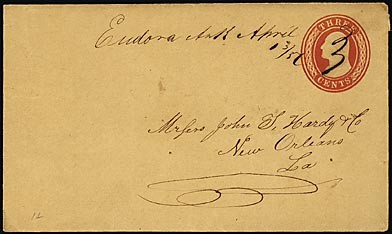 Eudora Ark April
THREE
3
CENTS
Messrs John T. Hardy & Co
New Orleans
La
12